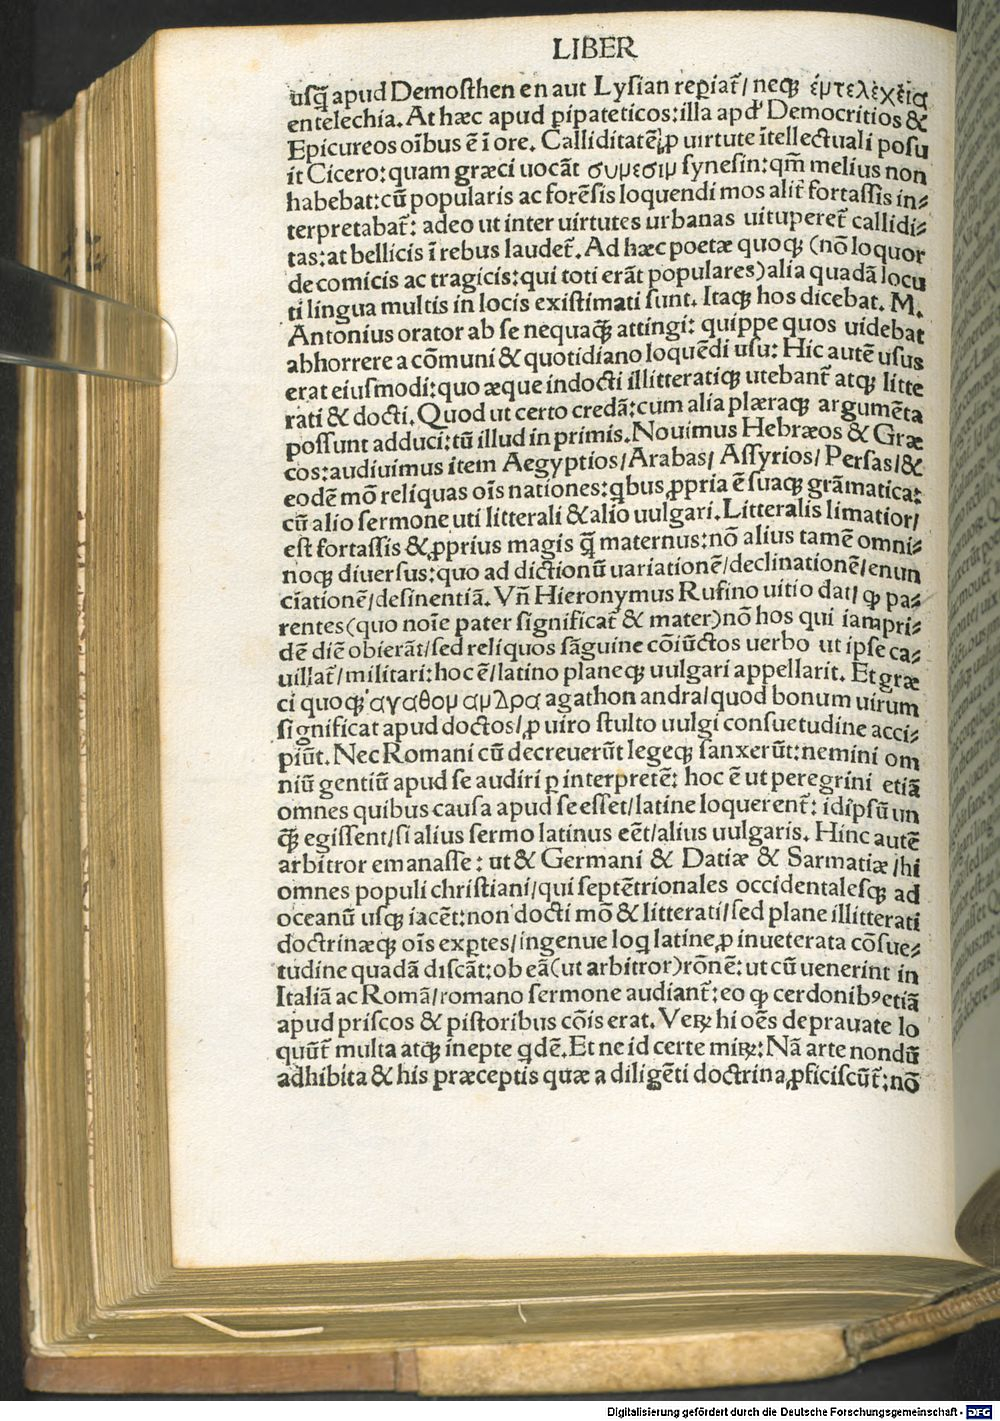 LIBER
uſq̃ apud Demoſthen en aut Lyſian reꝑiat᷑/ neqꝫ ἐντελέχεια
entelechia. At hæc apud ꝑipateticos: illa apđ Democritios &
Epicureos oībus ē ī ore. Calliditatē ꝓ uirtute ītellectuali poſu
it Cicero: quam græci uocāt συνεσιν ſyneſin: qm̄ melius non
habebat: cū popularis ac forēſis loquendi mos alit᷑ fortaſſis in⸗
terpretabat᷑: adeo ut inter uirtutes urbanas uituperet᷑ callidi⸗
tas: at bellicis ī rebus laudet᷑. Ad hæc poetæ quoqꝫ (nō loquor
de comicis ac tragicis: qui toti erāt populares) alia quadā locu
ti lingua multis in locis exiſtimati ſunt. Itaqꝫ hos dicebat. M.
Antonius orator ab ſe nequaqꝫ̃ attingi: quippe quos uidebat
abhorrere a cōmuni & quotidiano loquēdi uſu: Hic autē uſus
erat eiuſmodi: quo æque indocti illitteratiqꝫ utebant᷑ atqꝫ litte
rati & docti. Quod ut certo credā: cum alia plæraqꝫ argumēta
poſſunt adduci: tū illud in primis. Nouimus Hebræos & Græ
cos: audiuimus item Aegyptios/ Arabas/ Aſſyrios/ Perſas/ &
eodē mō reliquas oīs nationes: qbus ꝓpria ē ſuaqꝫ grāmatica:
cū alio ſermone uti litterali & alio uulgari. Litteralis limatior/
eſt fortaſſis & ꝓprius magis q̃ maternus: nō alius tamē omni⸗
noqꝫ diuerſus: quo ad dictionū uariationē/ declinationē/ enun
ciationē/ deſinentiā. Vñ Hieronymus Rufino uitio dat/ ꝙ pa⸗
rentes (quo noīe pater ſignificat᷑ & mater) nō hos qui iampri⸗
dē diē obierāt/ ſed reliquos ſāguine cōiūctos uerbo ut ipſe ca⸗
uillat᷑/ militari: hoc ē/ latino planeqꝫ uulgari appellarit. Et græ
ci quoqꝫ ἀγαθον ανδρα agathon andra/ quod bonum uirum
ſignificat apud doctos/ ꝓ uiro ſtulto uulgi conſuetudine acci⸗
piūt. Nec Romani cū decreuerūt legeqꝫ ſanxerūt: nemini om
niū gentiū apud ſe audiri ꝑ interpretē: hoc ē ut peregrini etiā
omnes quibus cauſa apud ſe eſſet/ latine loquerent᷑: id ip̄ſū un
qꝫ̃ egiſſent/ ſi alius ſermo latinus eēt/ alius uulgaris. Hinc autē
arbitror emanaſſe: ut & Germani & Datiæ & Sarmatiæ/ hi
omnes populi chriſtiani/ qui ſeptētrionales occidentaleſqꝫ ad
oceanū uſqꝫ iacēt: non docti mō & litterati/ ſed plane illitterati
doctrinæqꝫ oīs exꝑtes/ ingenue loq latine, ꝓ inueterata cōſue⸗
tudine quadā diſcāt: ob eā (ut arbitror) rōnē: ut cū uenerint in
Italiā ac Romā/ romano ſermone audiant᷑: eo ꝙ cerdonibꝰ etiā
apud priſcos & piſtoribus cōis erat. Veꝝ hi oēs deprauate lo
quūt᷑ multa atqꝫ inepte qdē. Et ne id certe miꝝ: Nā arte nondū
adhibita & his præceptis quæ a diligēti doctrina ꝓficiſcūt᷑: nō
Digitalisierung gefördert durch die Deutsche Forschungsgemeinschaft - DFG